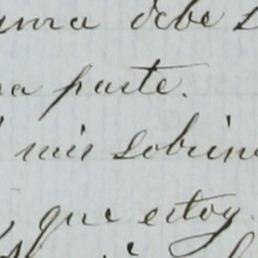 debe
parte.
mis sobrin
que estoy